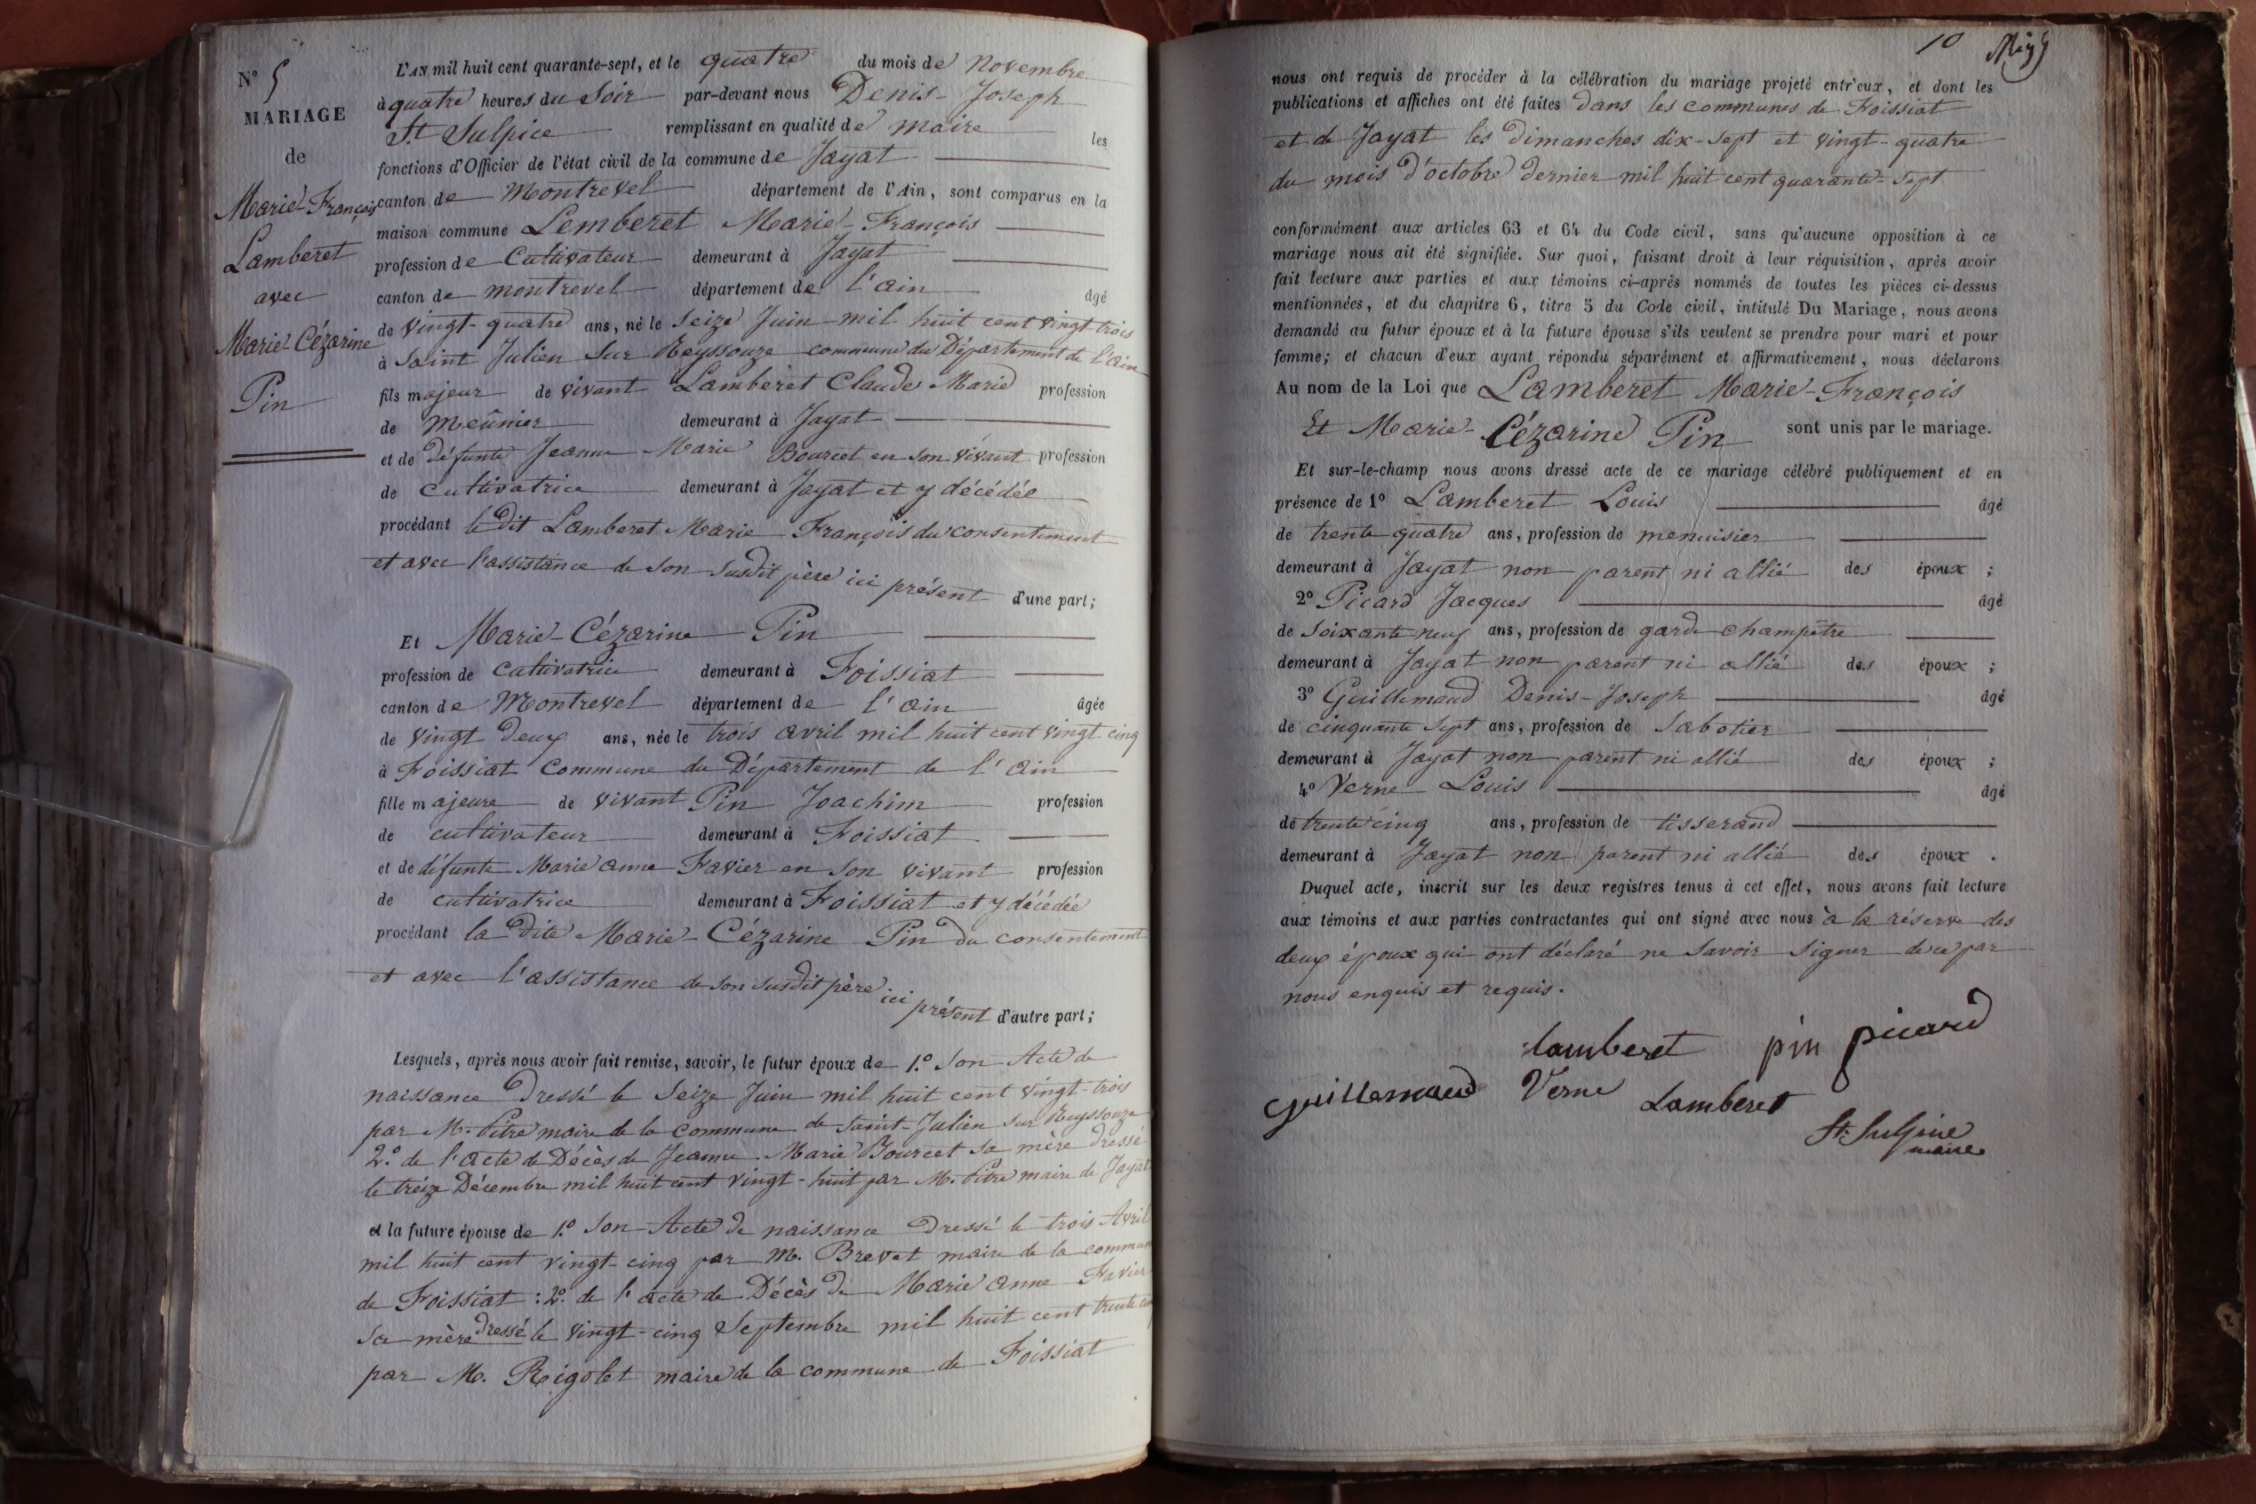 N° 5
MARIAGE
de
Marie-François
Lamberet
avec
Marie-Cézarine
Pin
L'AN mil huit cent quarante-sept, et le quatre du mois de novembre
à quatre heures du Soir par-devant nous Denis-Joseph
St. Sulpice remplissant en qualité de maire les
fonctions d'Officier de l'état civil de la commune de Jayat
canton de Montrevel département de l'Ain, sont comparus en la
maison commune Lemberet Marie-François
profession de Cultivateur demeurant à Jayat
canton de montrevel département de l'ain âgé
de vingt-quatre ans, né le Seize Juin mil huit cent vingt-trois
à Saint Julien Sur Reyssouze commune du Département de l'Ain
fils majeur de vivant Lamberet Claude Marie profession
de Meûnier demeurant à Jayat
et de défunte Jeanne Marie Bourcet en son vivant profession
de cultivatrice demeurant à Jayat et y décédée
procédant le dit Lamberet Marie François du consentement
et avec l'assistance de son susdit père ici présent d'une part;
Et Marie-Cézarine Pin
profession de cultivatrice demeurant à Foissiat
canton de Montrevel département de l'ain âgée
de vingt deux ans, née le trois avril mil huit cent vingt cinq
à Foissiat Commune du Département de l'ain
fille majeure de vivant Pin Joachim profession
de cultivateur demeurant à Foissiat
et de défunte Marie anne Favier en son vivant profession
de cultivatrice demeurant à Foissiat et y décédée
procédant la dite Marie-Cézarine Pin du consentement
et avec l'assistance de son susdit père ici présent d'autre part;
Lesquels, après nous avoir fait remise, savoir, le futur époux de 1.° Son Acte de
naissance Dressé le Seize Juin mil huit cent vingt-trois
par M. Pitre maire de la commune de Saint-Julien sur Reyssouze
2.° de l'acte de Décès de Jeanne Marie Bourcet sa mère dressé
le treize Décembre mil huit cent vingt-huit par M. Pitre maire de Jayat
et la future épouse de 1.° Son Acte de naissance Dressé le trois Avril
mil huit cent vingt-cinq par M. Brevet maire de la commune
de Foissiat : 2.° de l'acte de Décès de Marie anne Favier
sa mère dressé le vingt-cinq Septembre mil huit cent trente cinq
par M. Rigolet maire de la commune de Foissiat
10
nous ont requis de procéder à la célébration du mariage projeté entr'eux, et dont les
publications et affiches ont été faites dans les communes de Foissiat
et de Jayat les Dimanches dix-sept et vingt-quatre
du mois d'octobre dernier mil huit cent quarante-sept
conformément aux articles 63 et 64 du Code civil, sans qu'aucune opposition à ce
mariage nous ait été signifiée. Sur quoi, faisant droit à leur réquisition, après avoir
fait lecture aux parties et aux témoins ci-après nommés de toutes les pièces ci-dessus
mentionnées, et du chapitre 6, titre 5 du Code civil, intitulé Du Mariage, nous avons
demandé au futur époux et à la future épouse s'ils veulent se prendre pour mari et pour
femme; et chacun d'eux ayant répondu séparément et affirmativement, nous déclarons
Au nom de la Loi que Lamberet Marie-François
Et Marie-Cézarine Pin sont unis par le mariage.
Et sur-le-champ nous avons dressé acte de ce mariage célébré publiquement et en
présence de 1° Lamberet Louis âgé
de trente quatre ans, profession de menuisier
demeurant à Jayat non parent ni allié des époux ;
2° Picard Jacques âgé
de Soixante neuf ans, profession de garde champêtre
demeurant à Jayat non parent ni allié des époux ;
3° Guillemaud Denis-Joseph âgé
de cinquante sept ans, profession de Sabotier
demeurant à Jayat non parent ni allié des époux ;
4° Verne Louis âgé
de trente cinq ans, profession de tisserand
demeurant à Jayat non parent ni allié des époux .
Duquel acte, inscrit sur les deux registres tenus à cet effet, nous avons fait lecture
aux témoins et aux parties contractantes qui ont signé avec nous à la réserve des
deux époux qui ont déclaré ne savoir signer de ce par
nous enquis et requis.
lamberet pin picard
Guillemaud Verne Lamberet
St. Sulpice
maire